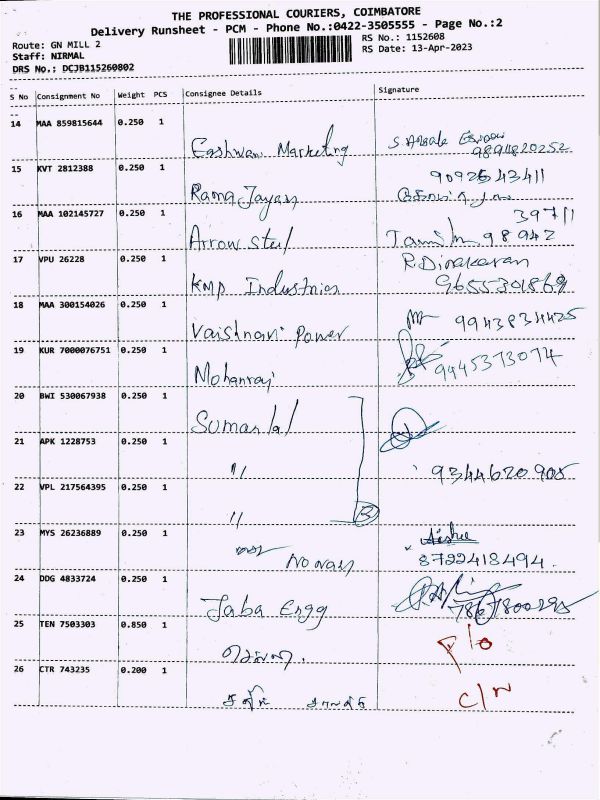 THE PROFESSIONAL COURIERS, COIMBATORE
Delivery Runsheet - PCM - Phone No.:0422-3505555 - Page No.:2
Route: GN MILL 2
Staff: NIRMAL
DRS No.: DCJB115260802
RS No.: 1152608
RS Date: 13-Apr-2023
S No Consignment No Weight PCS Consignee Details Signature
14 MAA 859815644 0.250 1
Eashwari Marketing 9894820252
15 KVT 2812388 0.250 1
Rama Jayam 9092543411
16 MAA 102145727 0.250 1
Arrow Steel 98942 39711
17 VPU 26228 0.250 1
KMP Industries R. Dinakaran 9655301869
18 MAA 300154026 0.250 1
Vaishnavi Power 9943834425
19 KUR 7000076751 0.250 1
Mohanraj 9445373074
20 BWI 530067938 0.250 1
Suman lal
21 APK 1228753 0.250 1
" 9344620905
22 VPL 217564395 0.250 1
" 3
23 MYS 26236889 0.250 1
8722418494
24 DDG 4833724 0.250 1
Jaba Engg 7867800295
25 TEN 7503303 0.850 1
P/o
26 CTR 743235 0.200 1
C/N